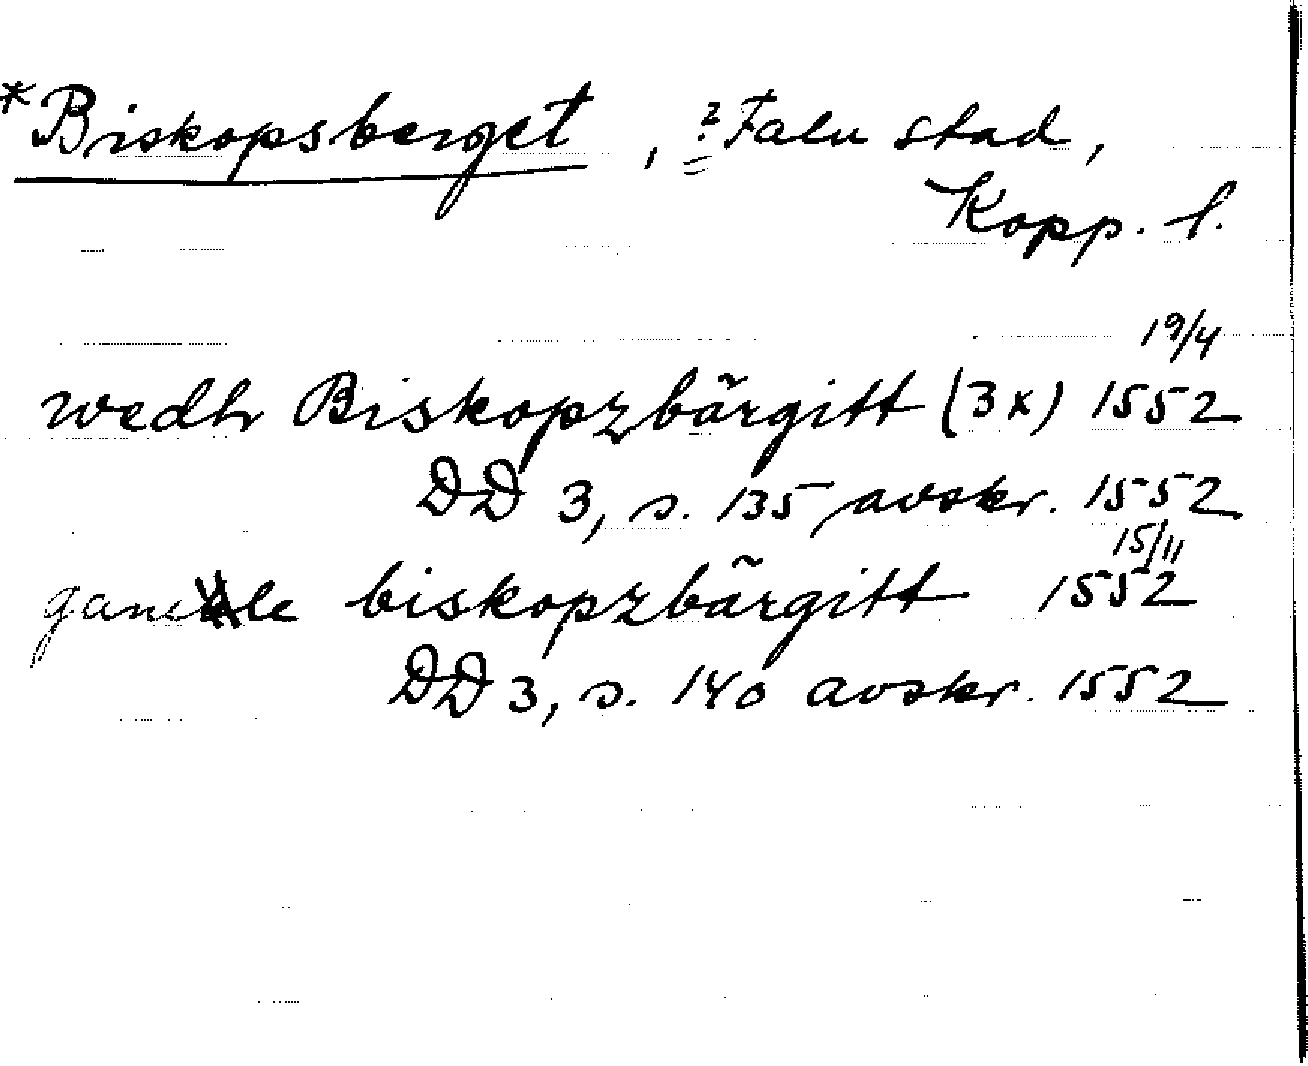 *Biskopsberget, ? Falu stad,
Kopp. l.
19/4
wedh Biskopzbärgitt (3x) 1552
DD 3, s. 135 avskr. 1552
15/11
gamble biskopzbärgitt 1552
DD 3, s. 140 avskr. 1552